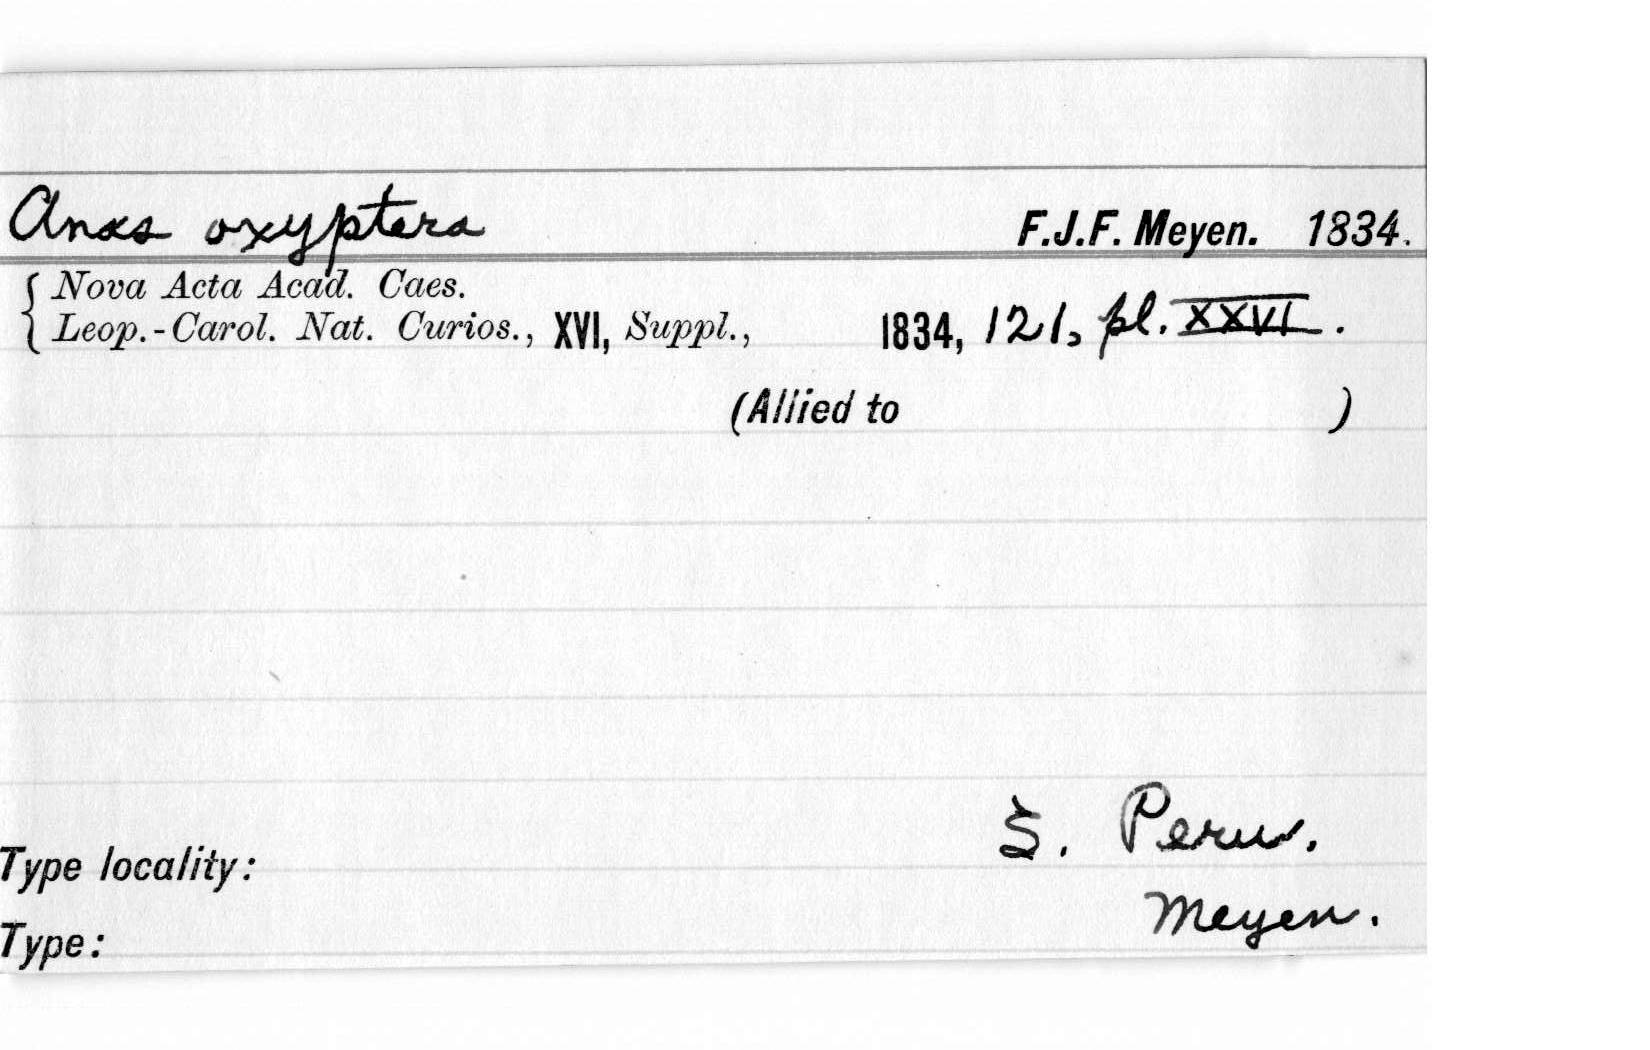 Anas oxyptera F.J.F. Meyen. 1834.
Nova Acta Acad. Caes.
Leop.-Carol. Nat. Curios., XVI, Suppl., 1834, 121, pl. XXVI.
(Allied to )
S. Peru.
Type locality:
Meyen.
Type: